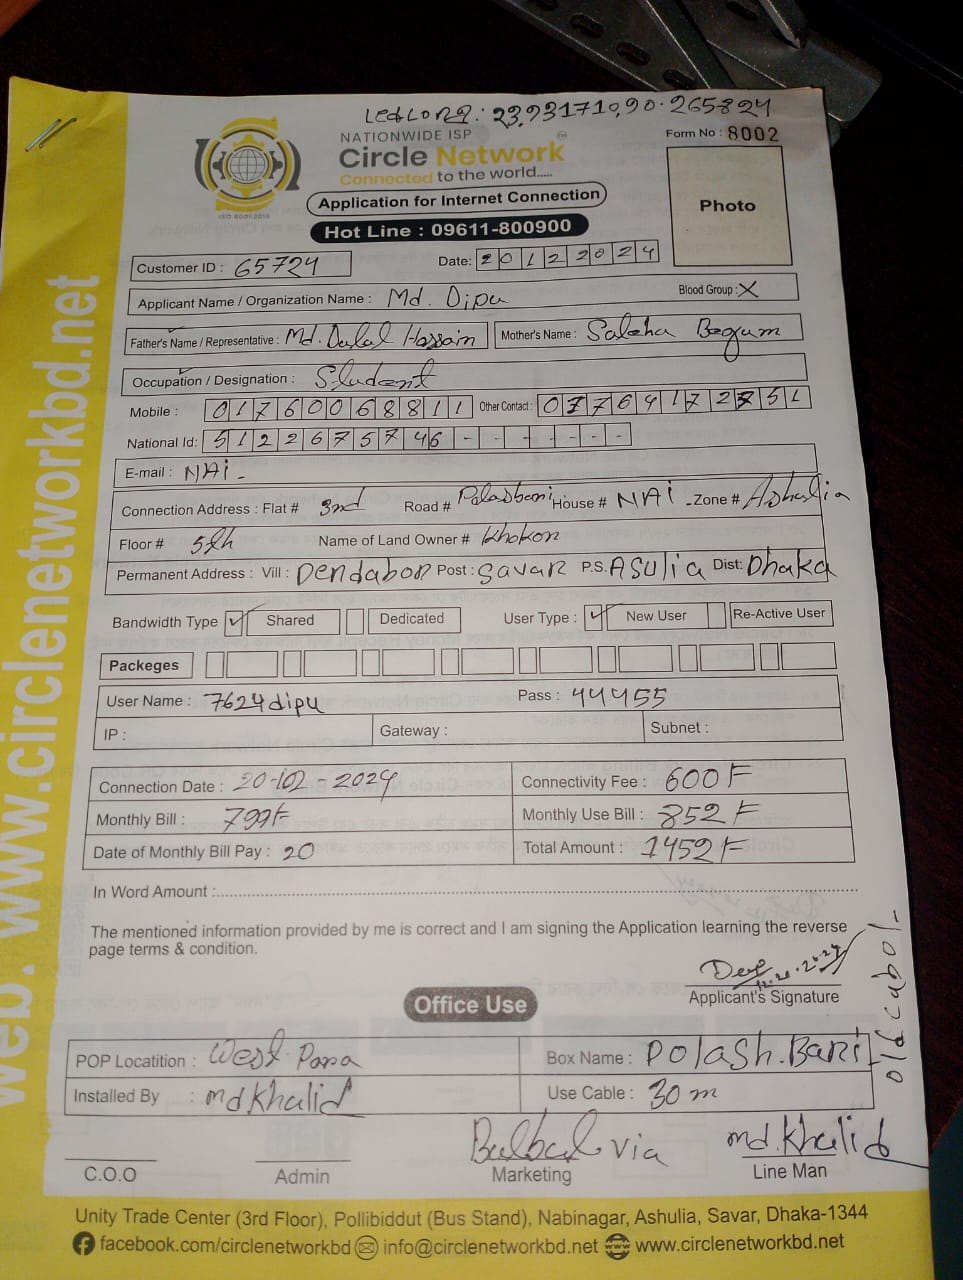 23.93171,90.265824
NATIONWIDE ISP
Form No : 8002
Circle Network
Connected to the world.....
ISO 9001:2015
Application for Internet Connection
Photo
Hot Line : 09611-800900
Customer ID : 65724 Date: 20122024
Applicant Name / Organization Name : Md. Dipu Blood Group : X
Father's Name / Representative : Md. Dulal Hossain Mother's Name : Saleha Begum
Occupation / Designation : Student
Mobile : 01760068811 Other Contact :
National Id: 5122675746 - - - - - - -
E-mail : NAi -
Connection Address : Flat # 3nd Road # Palasbari House # NAi Zone # Ashulia
Floor # 5th Name of Land Owner # Khokon
Permanent Address : Vill : Dendabon Post : Savar P.S. ASulia Dist: Dhaka
Bandwidth Type ✓ Shared Dedicated User Type : ✓ New User Re-Active User
Packeges
User Name : 7624dipu Pass : 44455
IP : Gateway : Subnet :
Connection Date : 20-12-2024 Connectivity Fee : 600 F
Monthly Bill : 799 F Monthly Use Bill : 852 F
Date of Monthly Bill Pay : 20 Total Amount : 1452 F
In Word Amount :
The mentioned information provided by me is correct and I am signing the Application learning the reverse
page terms & condition.
Applicant's Signature
Office Use
POP Locatition : West Para Box Name : Polash.Bari
Installed By : md Khalid Use Cable : 30 m
old cabol-
Bulbul via md. Khalid
C.O.O Admin Marketing Line Man
Unity Trade Center (3rd Floor), Pollibiddut (Bus Stand), Nabinagar, Ashulia, Savar, Dhaka-1344
facebook.com/circlenetworkbd info@circlenetworkbd.net www.circlenetworkbd.net
web : www.circlenetworkbd.net